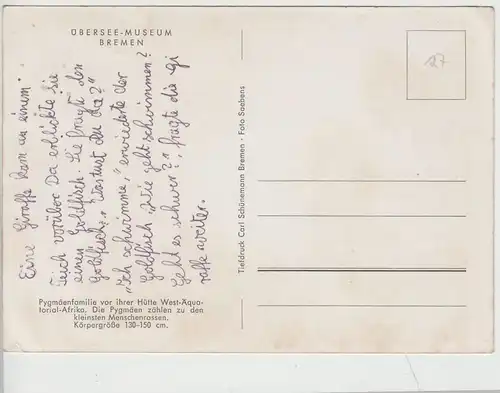 ÜBERSEE-MUSEUM
BREMEN
Eine Giraffe kam an einem
Teich vorüber. Da erblickte sie
einen Goldfisch. Sie fragt den
Goldfisch: „Was tust du da?"
„Ich schwimme," erwiederte der
Goldfisch „Wie geht schwimmen?
Geht es schwer?", fragte die gi
raffe weiter.
Pygmäenfamilie vor ihrer Hütte West-Äqua-
torial-Afrika. Die Pygmäen zählen zu den
kleinsten Menschenrassen.
Körpergröße 130-150 cm.
Tiefdruck Carl Schünemann Bremen · Foto Saebens